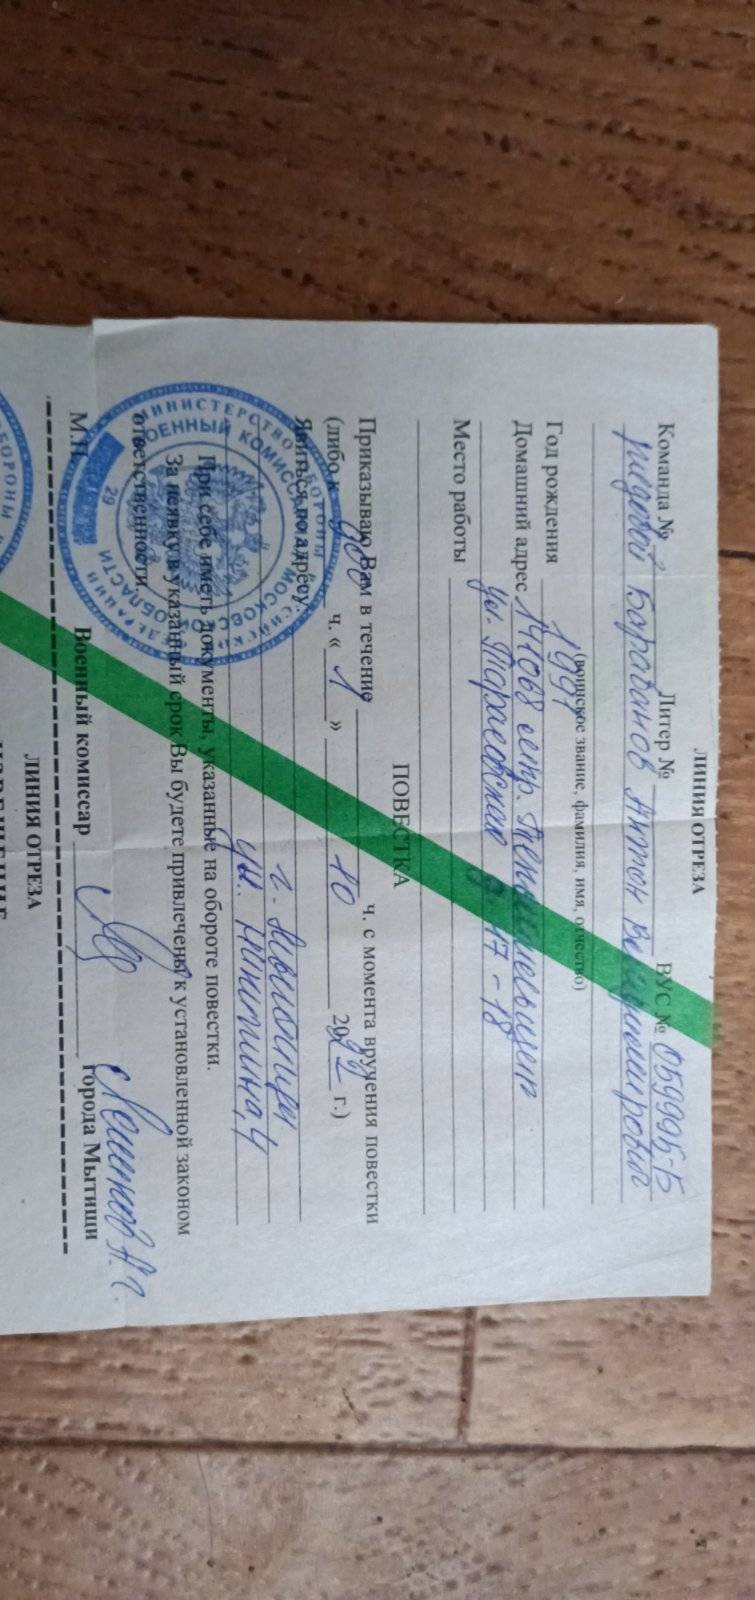 ЛИНИЯ ОТРЕЗА
Команда № Литер № ВУС № 059995-Б
рядовой Антон Владимирович
(воинское звание, фамилия, имя, отчество)
Год рождения 1991
Домашний адрес
ул. Тарасовская 17-18
Место работы
ПОВЕСТКА
Приказываю Вам в течение ч. с момента вручения повестки
(либо к 9 00 ч. « 1 » 10 2022 г.)
Явиться по адресу: г. Мытищи
ул. 4
При себе иметь документы, указанные на обороте повестки.
За неявку в указанный срок Вы будете привлечены к установленной законом
ответственности.
М.П. Военный комиссар города Мытищи
МИНИСТЕРСТВО ОБОРОНЫ РОССИЙСКОЙ ФЕДЕРАЦИИ
ВОЕННЫЙ КОМИССАРИАТ МОСКОВСКОЙ ОБЛАСТИ
29
ЛИНИЯ ОТРЕЗА
ОБОРОНЫ